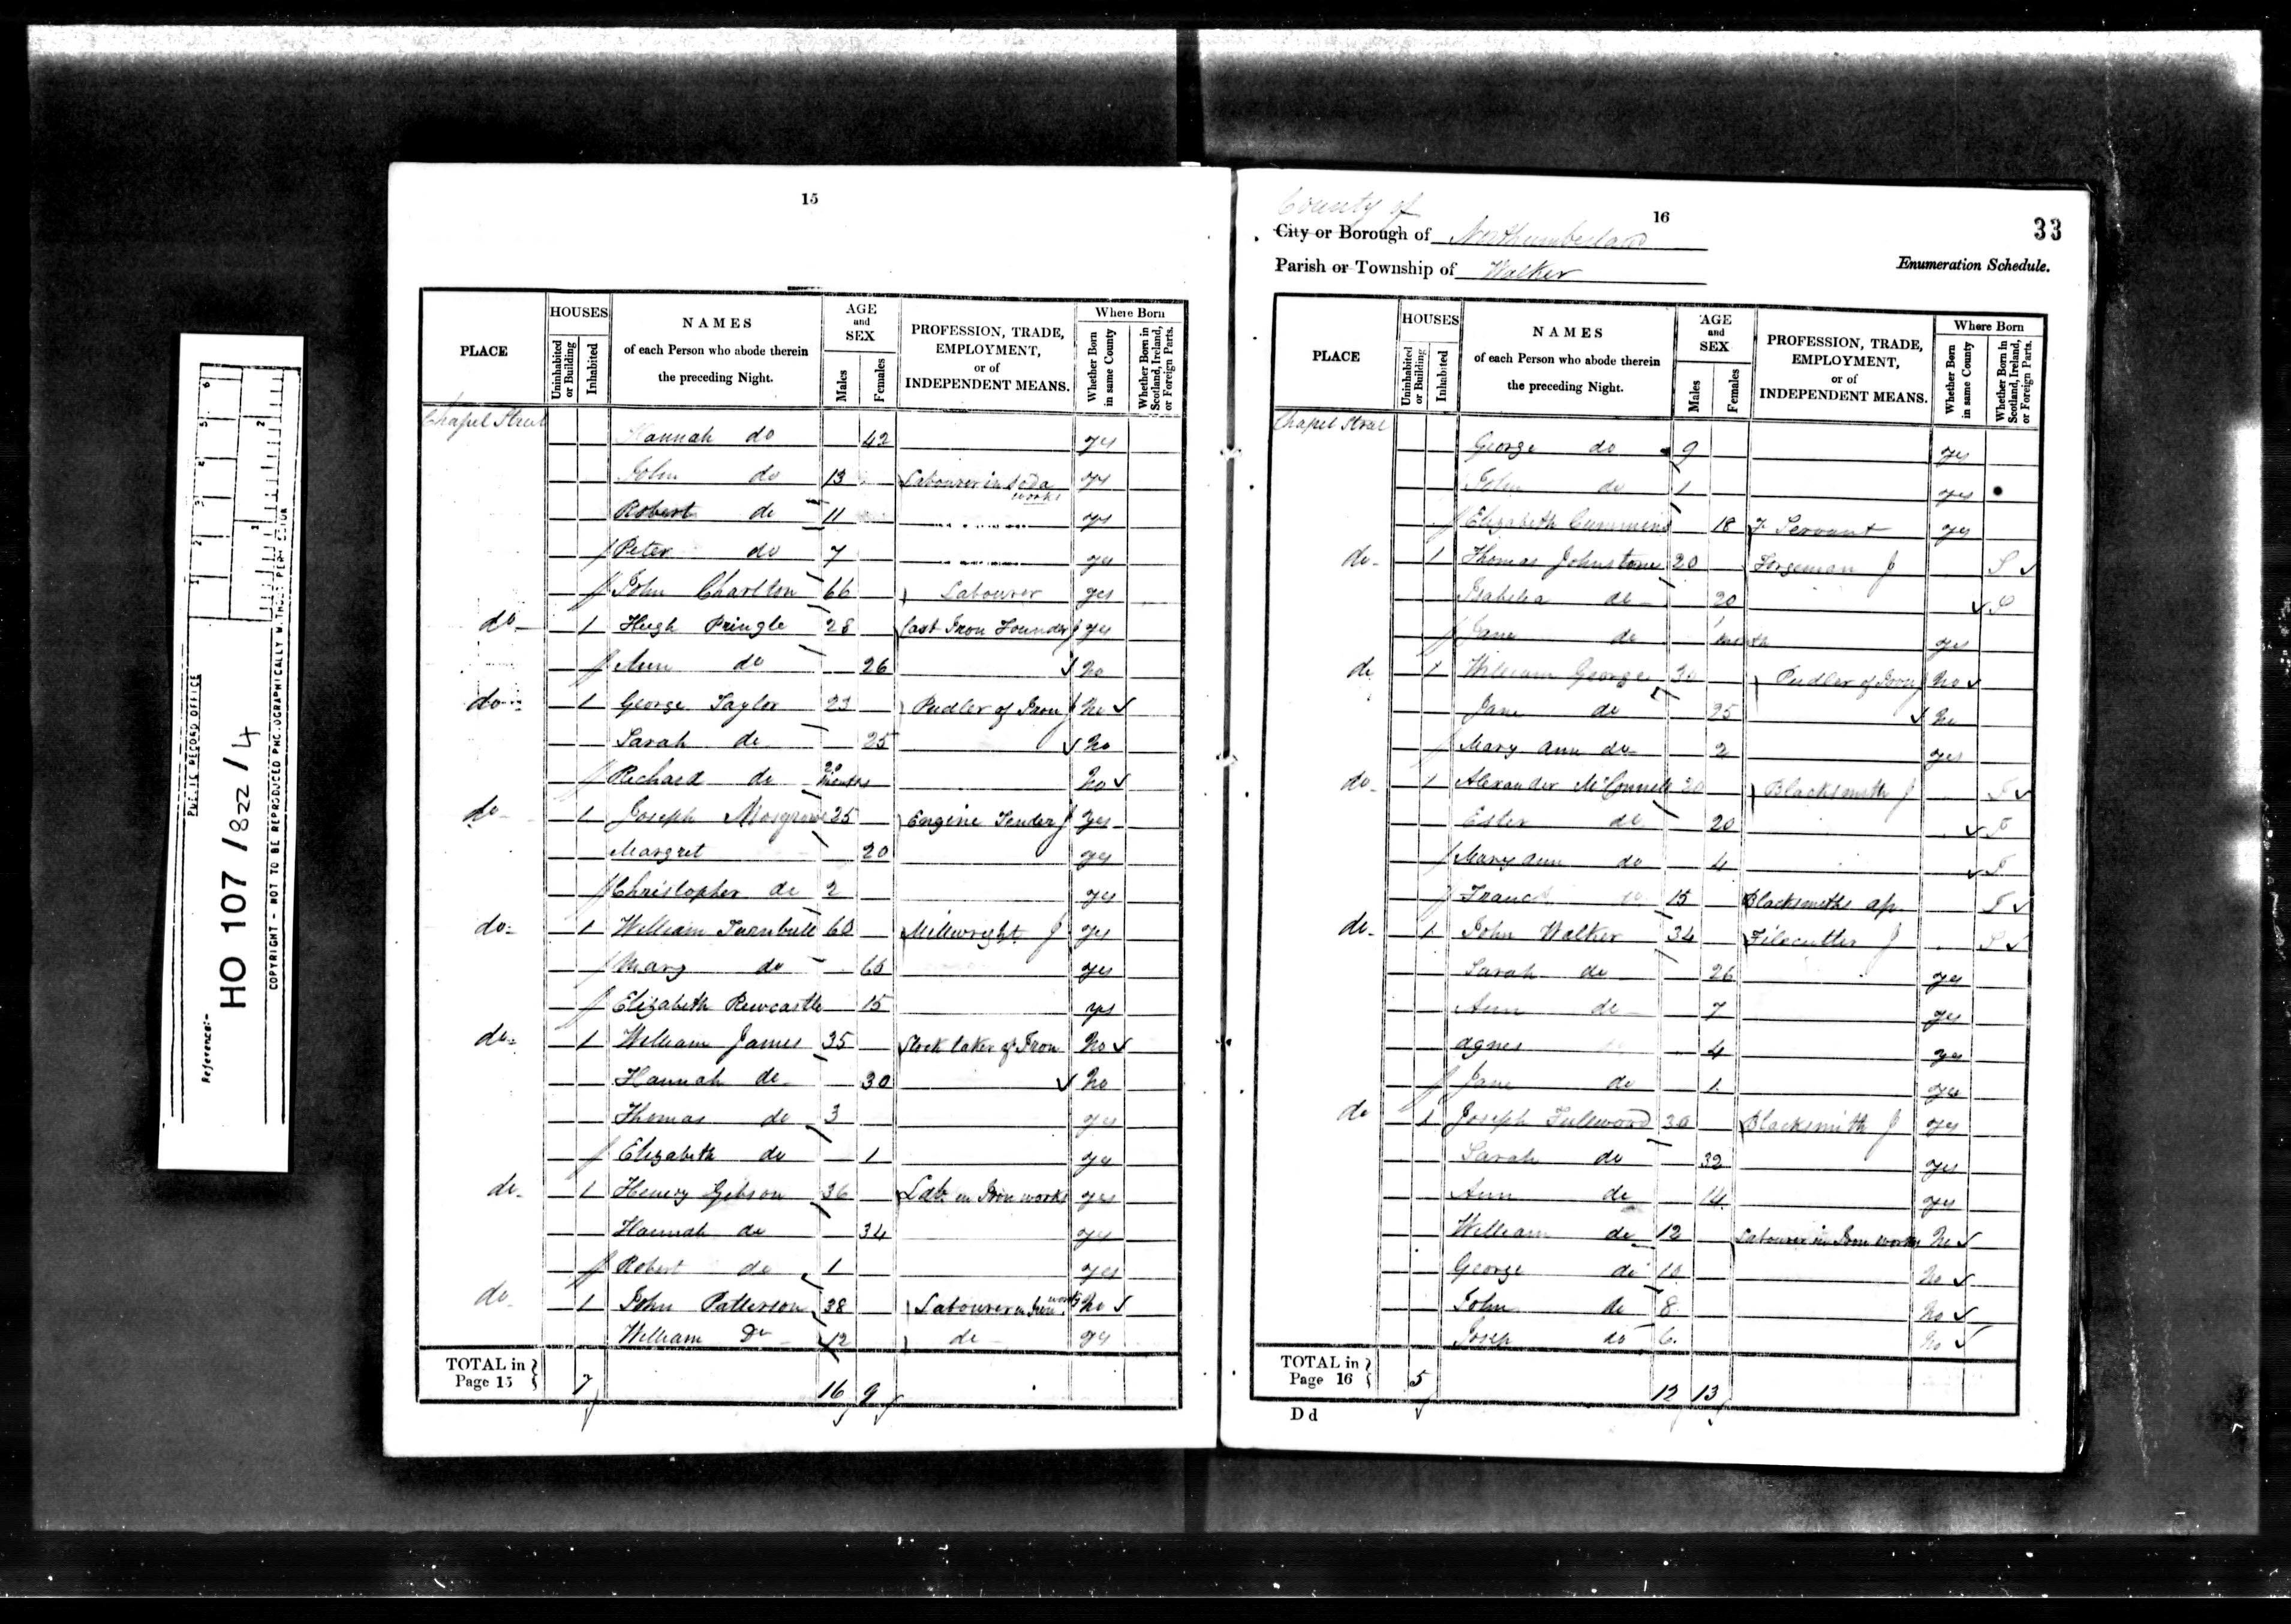 PUBLIC RECORD OFFICE
Reference:-
HO 107 / 822 / 4
15
PLACE
HOUSES
Uninhabited or Building
Inhabited
NAMES
of each Person who abode therein
the preceding Night.
AGE
and
SEX
Males
Females
PROFESSION, TRADE,
EMPLOYMENT,
or of
INDEPENDENT MEANS.
Where Born
Whether Born in same County
Whether Born in Scotland, Ireland, or Foreign Parts.
Chapel Street Hannah do 42 yes
John do 13 Labourer in Soda works yes
Robert do 11 yes
Peter do 7 yes
John Charlton 66 Labourer yes
do 1 Hugh Pringle 28 Cast Iron Founder J yes
Ann do 26 No
do 1 George Taylor 23 Pudler of Iron J No
Sarah do 25 No
Richard do months No
do 1 Joseph Mosgrove 25 Engine Tender J yes
Margret 20 yes
Christopher do 2 yes
do 1 William Turnbull 60 Millwright J yes
Mary do 65 yes
Elizabeth Rewcastle 15 yes
do 1 William James 35 Stock taker of Iron No
Hannah do 30 No
Thomas do 3 yes
Elizabeth do 1 ye
do 1 Henery Gibson 36 Labr in Iron works yes
Hannah do 34 yes
Robert do 1 yes
do 1 John Patterson 38 Labourer in Iron works No
William Do 12 do yes
TOTAL in Page 15 7 16 9
County of
16
33
City or Borough of Northumberland
Parish or Township of Walker
Enumeration Schedule.
PLACE
HOUSES
Uninhabited or Building
Inhabited
NAMES
of each Person who abode therein
the preceding Night.
AGE
and
SEX
Males
Females
PROFESSION, TRADE,
EMPLOYMENT,
or of
INDEPENDENT MEANS.
Where Born
Whether Born in same County
Whether Born in Scotland, Ireland, or Foreign Parts.
Chapel Stree George do 9 yes
John do 1 yes
Elizabeth Cummins 18 F Servant yes
do 1 Thomas Johnstone 20 Forgeman J S
Isabella do 20 S
Jane do 1 month yes
do 1 William George 30 Pudler of Iron J No
Jane do 25 No
Mary Ann do 2 yes
do 1 Alexander McConnell 20 Blacksmith J F
Ester do 20 F
Mary Ann do 4 F
15 Blacksmiths ap. F
do 1 John Walker 34 Filecutter J S
Sarah do 26 yes
Ann do 7 yes
Agnes 4 yes
Jane do 1 yes
do 1 Joseph Fullword 30 Blacksmith J yes
Sarah do 32 yes
Ann do 14 yes
William do 12 Labourer in Iron works No
George do 10 No
John do 8 No
Josep do 6 No
TOTAL in Page 16 5 12 13
D d